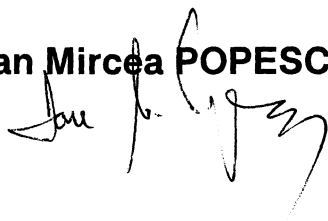 an Mircea POPESC